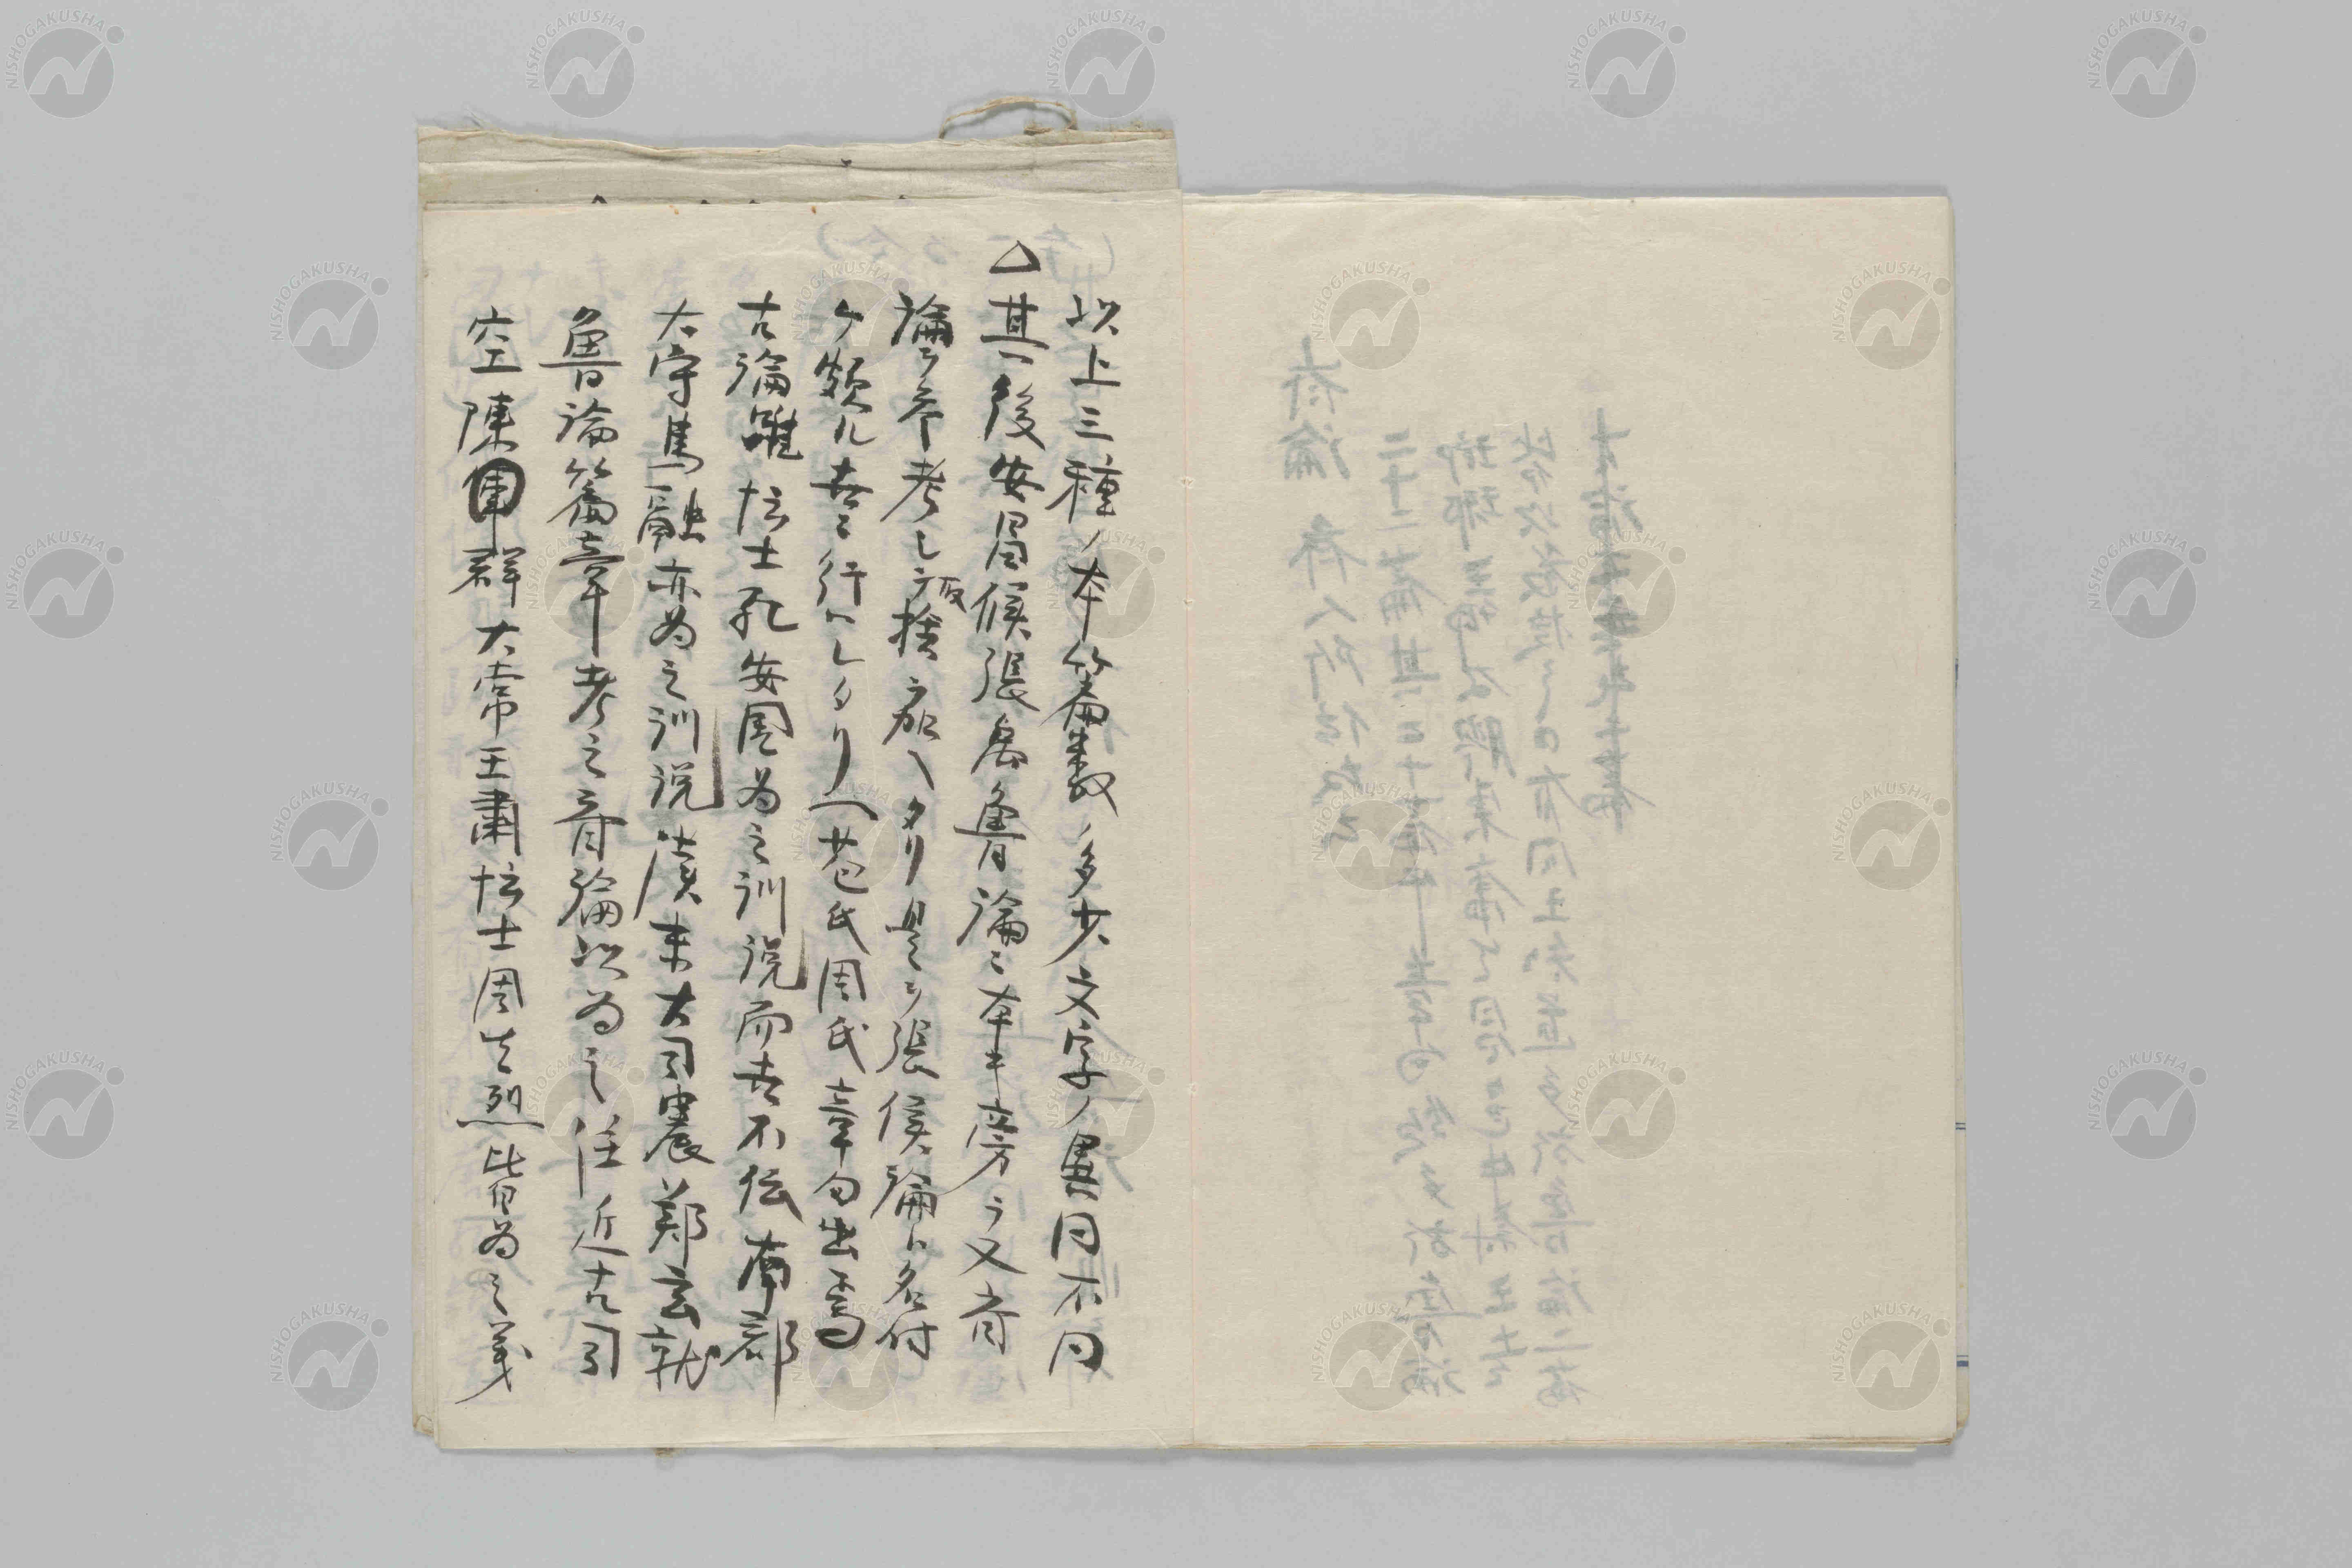 以上三種ノ本篇数ノ多少文字ノ異同不同
△其後安昌候張禹魯論ニ本ヰ旁ラ又斉
論ヲ参考シテ取捨ヲ加ヘタリ是ヲ張侯論ト名付
ケ頗ル世ニ行ハレタリ苞氏周氏章句出焉
古論雖博士孔安国為之訓説而世不伝南郡
太守馬融亦為之訓説漢末大司農鄭玄就
魯論篇章考之斉論以為之注近古司
空陳群大常王肅博士周生烈皆為之義
NISHOGAKUSHA